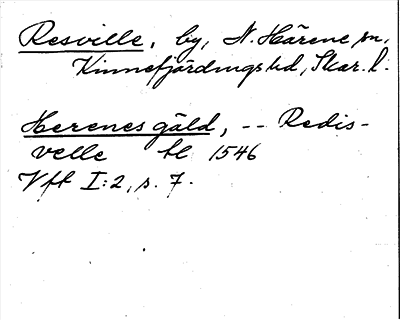 Resville, by, N. Härene sn,
Kinnefjärdings hd, Skar. l.
Herenes gäld, -- Redis-
velle bl 1546
Vft I:2, s. 7.